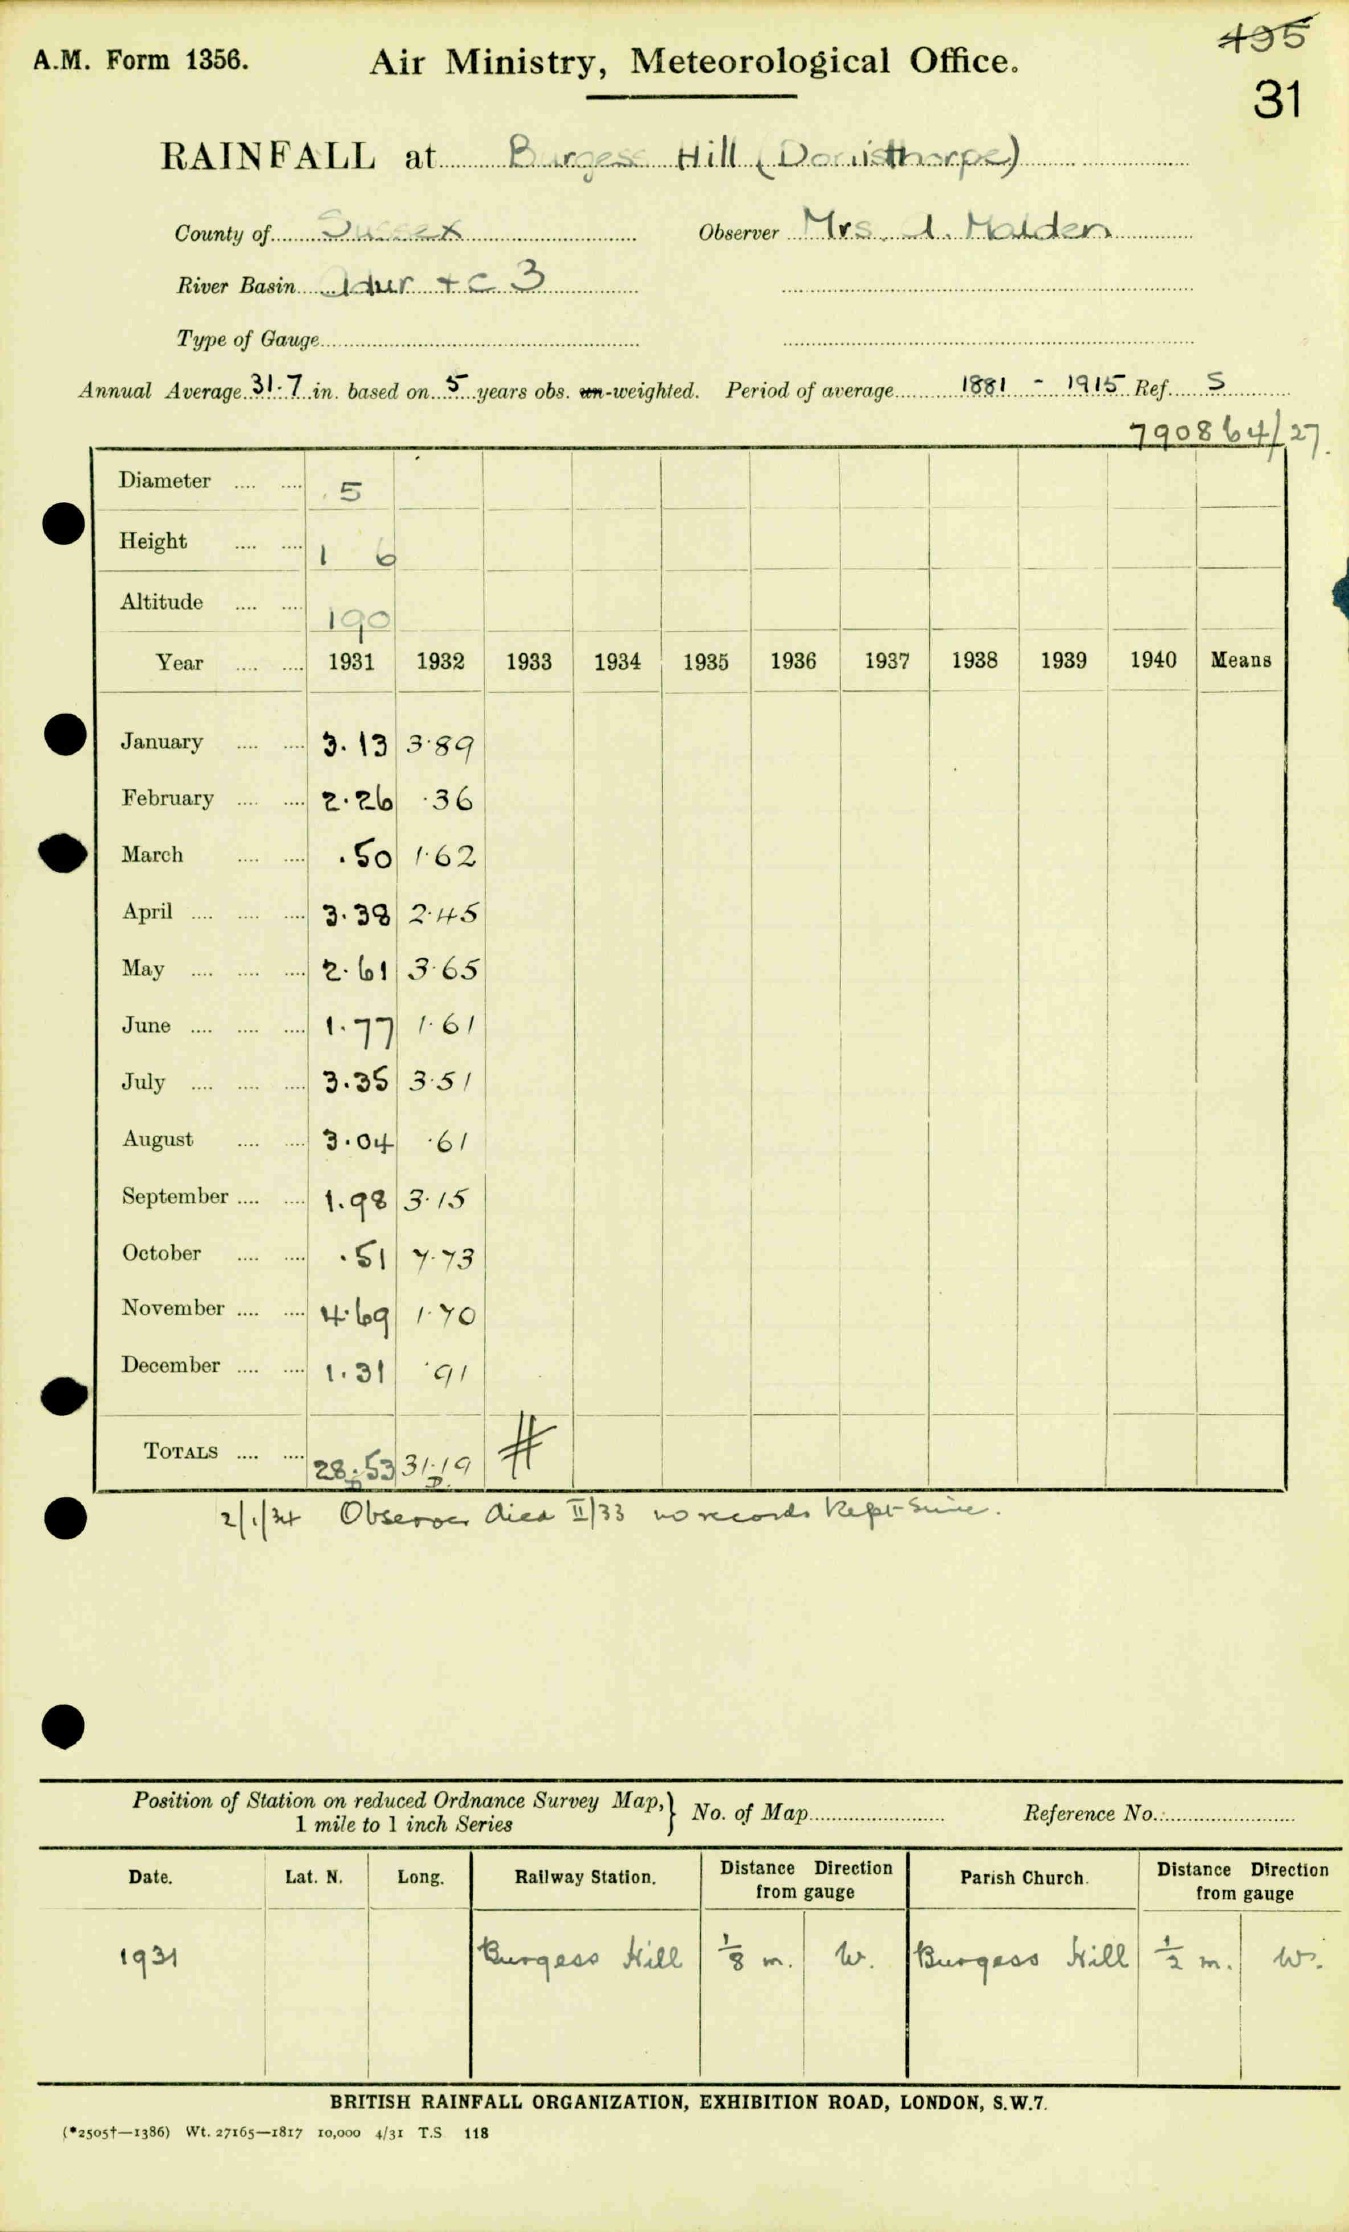 A.M. Form 1356. Air Ministry, Meteorological Office. 495
31
RAINFALL at Burgess Hill (Donisthorpe)
County of Sussex Observer Mrs. Malden
River Basin Adur + C 3
Type of Gauge
Annual Average 31.7 in. based on 5 years obs. un-weighted. Period of average 1881 - 1915 Ref. S
790864/27.
Diameter 5
Height 1 6
Altitude 190
Year 1931 1932 1933 1934 1935 1936 1937 1938 1939 1940 Means
January 3.13 3.89
February 2.26 .36
March .50 1.62
April 3.38 2.45
May 2.61 3.65
June 1.77 1.61
July 3.35 3.51
August 3.04 .61
September 1.98 3.15
October .51 7.73
November 4.69 1.70
December 1.31 .91
TOTALS 28.53 31.19 #
2/1/34 Observer died II/33 no records kept since.
Position of Station on reduced Ordnance Survey Map, } No. of Map Reference No.
1 mile to 1 inch Series
Date. Lat. N. Long. Railway Station. Distance Direction from gauge Parish Church. Distance Direction from gauge
1931 Burgess Hill 1/8 m. W. Burgess Hill 1/2 m. W.
BRITISH RAINFALL ORGANIZATION, EXHIBITION ROAD, LONDON, S.W.7.
(*2505†—1386) Wt. 27165—1817 10,000 4/31 T.S. 118